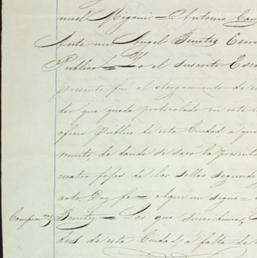 nuel Migoni = Antonio
ante mi Angel Benitez Escri
Publico = Yo el suscrito Escri
presente fui al otorgamiento de
que queda protocolado en este
oficio Publico de esta Ciudad a que
remito, de donde se sacó la presente
cuatro fojas de los sellos segundo
Doy fe = Aqui un signo =
Benitez = Los que suscribimos,
de esta Ciudad, a falta de